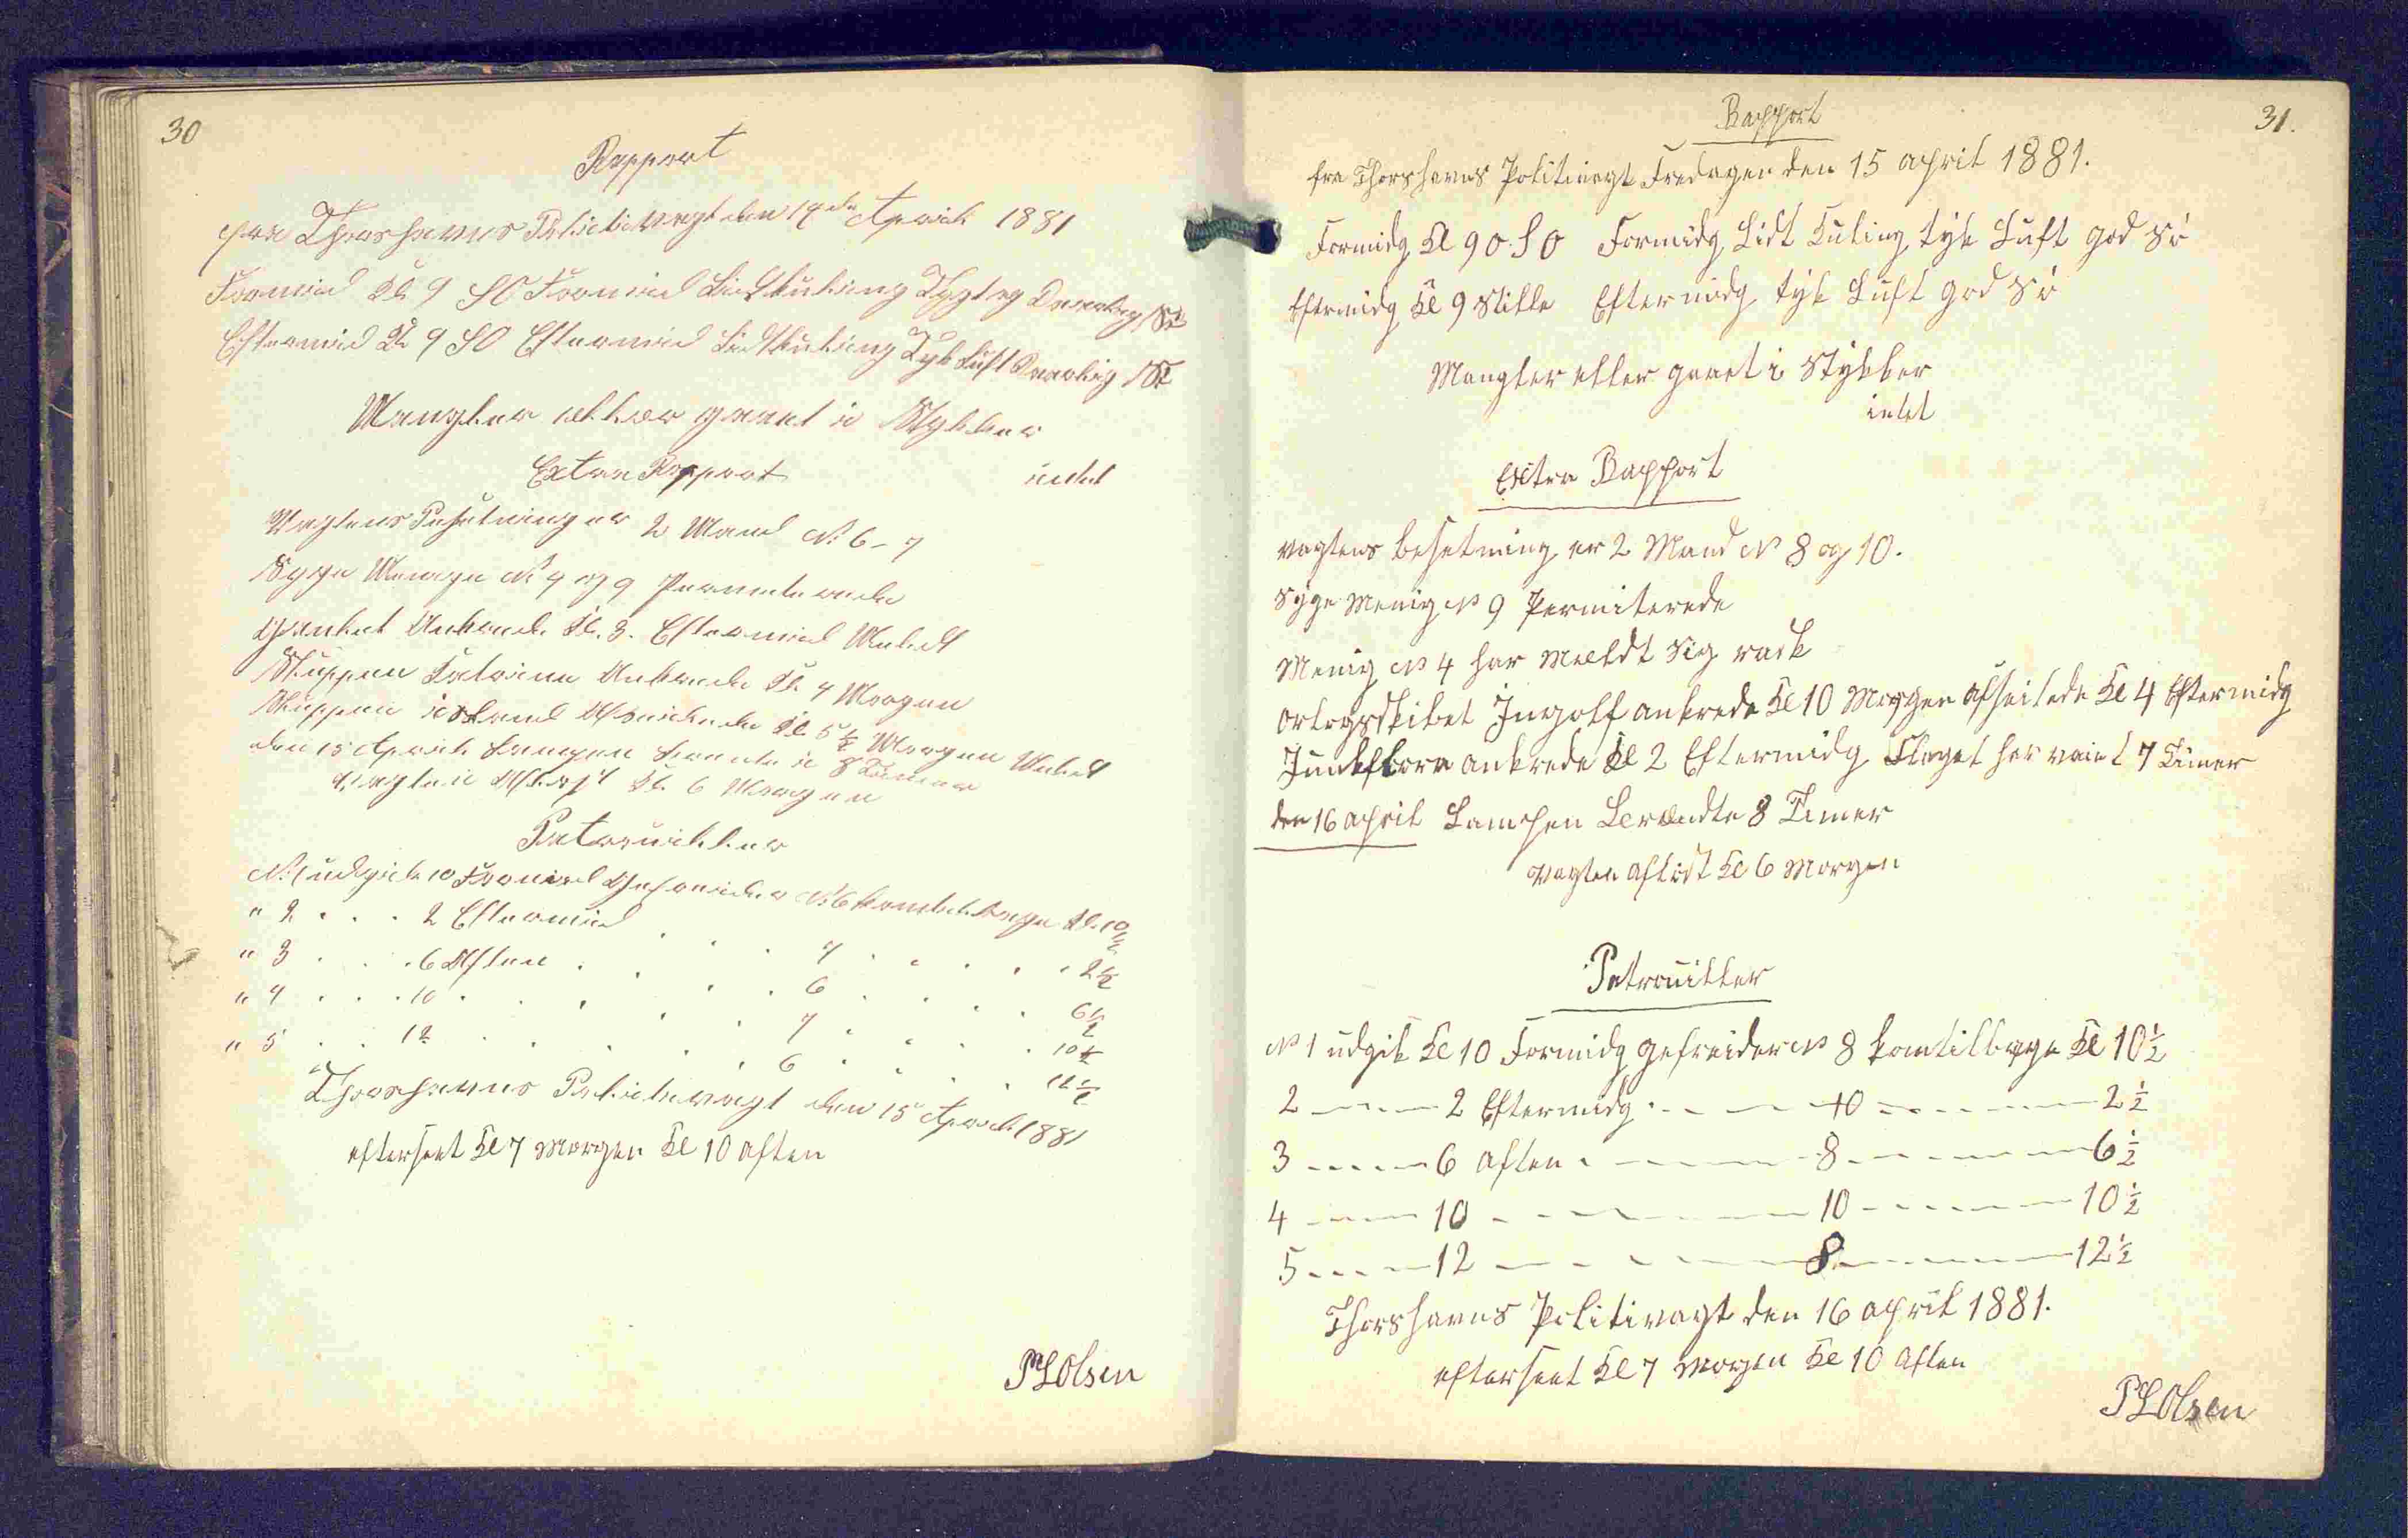 30
Rapport
fra Thorshavns Politivagt den 14de April 1881
Formid Kl 9 SO Formid Lidt Kuling Tyk og Daarlig Sö
Eftermid Kl 9 SO Eftermid Lidt Kuling Tyk Luft Daarlig Sö
Mangler eller gaaet i Stykker
Extra Rapport intet
Vagtens Besetning er 2 Mand No 6 - 7
Syge Menige No 4 og 9 Permiterede
Ankrede Kl. 3. Eftermid
Skuppen Ankrede Kl 4 Morgen
Skuppen island Afseilede Kl 5 ½ Morgen
den 15 April Lampen brændte i 8 Timer
Vagten Aflöst Kl. 6 Morgen
Patrouiller
No 1 udgik 10 Formid Gefreider No 6 kom tilbage Kl. 10 ½
" 2 . . . 2 Eftermid . . . 7 . . . . 2 ½
" 3 . . . 6 Aften . . . . 6 . . . 6 ½
" 4 . . . 10 . . . . . 7 . . . . 10 ½
" 5 . . 12 . . . . . 6 . . . . 12 ½
Thorshavns Politivagt den 15 April 1881
efterseet Kl 7 Morgen Kl 10 Aften
PLOlsen
31.
Rapport
fra Thorshavns Politivagt Fredagen den 15 april 1881.
Formidg Kl 9 OSO Formidg Lidt Kuling tyk Luft god Sö
Eftermidg Kl 9 Stille Eftermidg tyk Luft god Sö
Mangler eller gaaet i Stykker
intet
Extra Rapport
vagtens besetning er 2 Mand No 8 og 10.
Syge Menig No 9 Permiterede
Menig No 4 har Meeldt Sig rask
orlogsskibet Ingolf ankrede Kl 10 Morgen afseilede Kl 4 Eftermidg
ankrede Kl 2 Eftermidg Flaget har vaiet 7 Timer
den 16 april Lampen brændte 8 Timer
vagten aflöst Kl 6 Morgen
Patrouiller
No 1 udgik Kl 10 Formidg gefreider No 8 kom tilbage Kl 10 ½
2 - - - - 2 Eftermidg - - - - 10 - - - - - 2 ½
3 - - - - 6 aften - - - - 8 - - - - - 6 ½
4 - - - - 10 - - - - - 10 - - - - - 10 ½
5 - - - - 12 - - - - - 8 - - - - - 12 ½
Thorshavns Politivagt den 16 april 1881.
efterseet Kl 7 Morgen Kl 10 Aften
PLOlsen